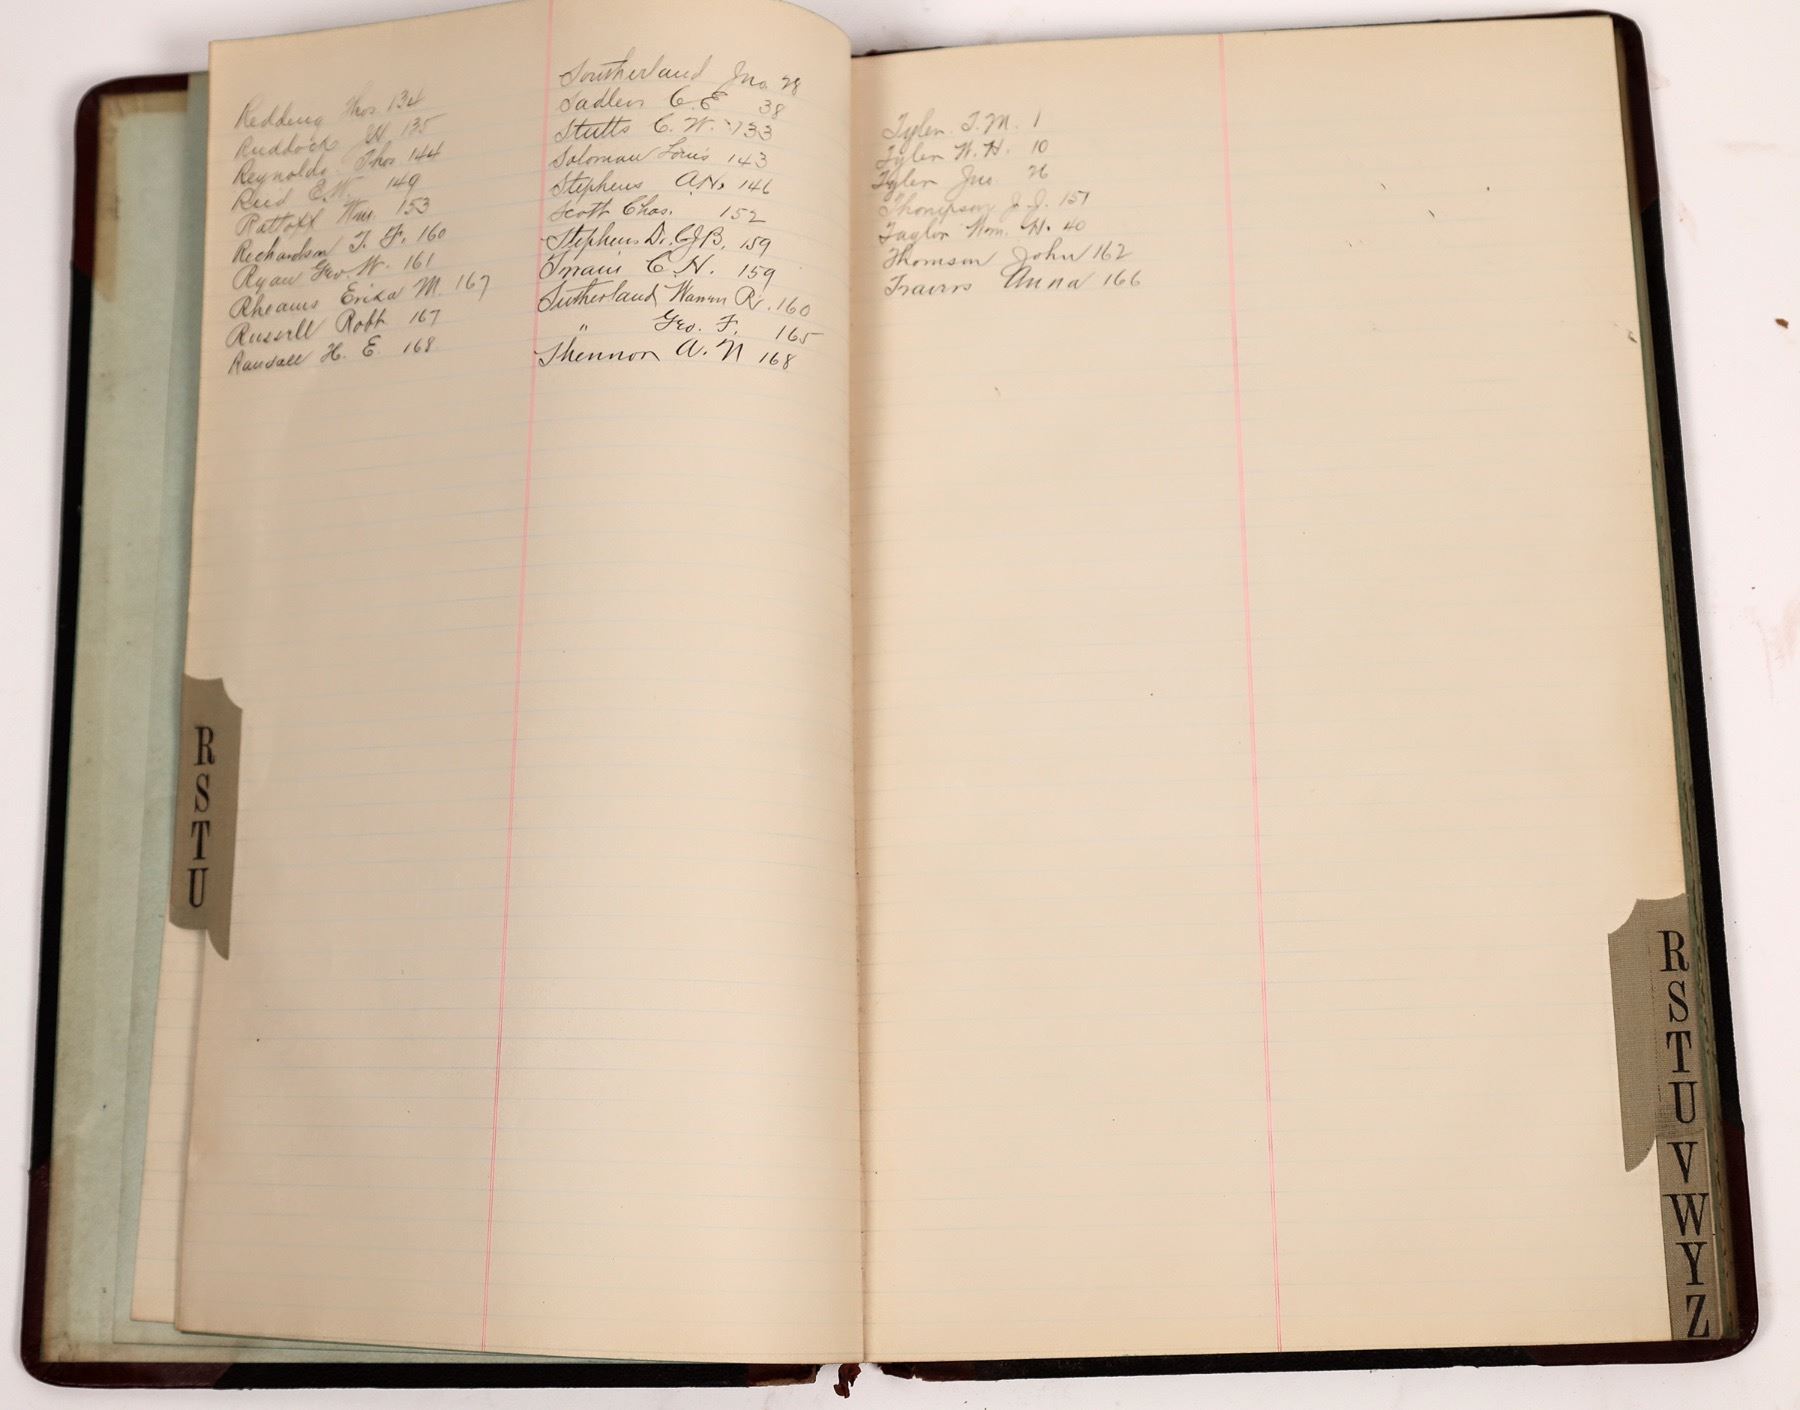 Redding Thos. 134
Ruddock JH 135
Reynolds. Thos 144
Reid E.W. 149
Wm. 153
Richardson T. F. 160
Ryan Geo W. 161
Rheams M. 167
Russell Robt 167
Randall H. E. 168
Southerland Jno. 28
Sadler C. E 38
Stutts C. W. 133
Soloman Louis 143
Stephens A.N. 146
Scott Chas. 152
Stephens Dr. C.J.B. 159
C. N. 159
Sutherland Warren R. 160
" Geo. F. 165
Shennon A. N 168
Tyler T. M. 1
Tyler W. H. 10
Tyler Jno. 26
Thompson J. J. 151
Taylor Wm. H. 40
Thomson John 162
Travers Anna 166
R
S
T
U
R
S
T
U
V
W
Y
Z